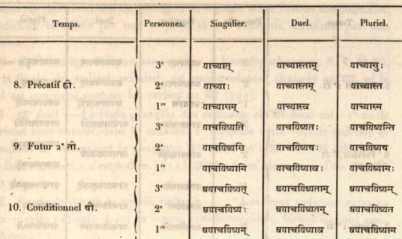 Temps. Personnes. Singulier. Duel. Pluriel.
3ᵉ वाच्यात् वाच्यास्ताम् वाच्यासुः
8. Précatif ढी. 2ᵉ वाच्याः वाच्यास्तम् वाच्यास्त
1ʳᵉ वाच्यासम् वाच्यास्व वाच्यास्म
3ᵉ वाचयिष्यति वाचयिष्यतः वाचयिष्यन्ति
9. Futur 2ᵉ ती. 2ᵉ वाचयिष्यसि वाचयिष्यथः वाचयिष्यथ
1ʳᵉ वाचयिष्यामि वाचयिष्यावः वाचयिष्यामः
3ᵉ अवाचयिष्यत् अवाचयिष्यताम् अवाचयिष्यन्
10. Conditionnel थी. 2ᵉ अवाचयिष्यः अवाचयिष्यतम् अवाचयिष्यत
1ʳᵉ अवाचयिष्यम् अवाचयिष्याव अवाचयिष्याम